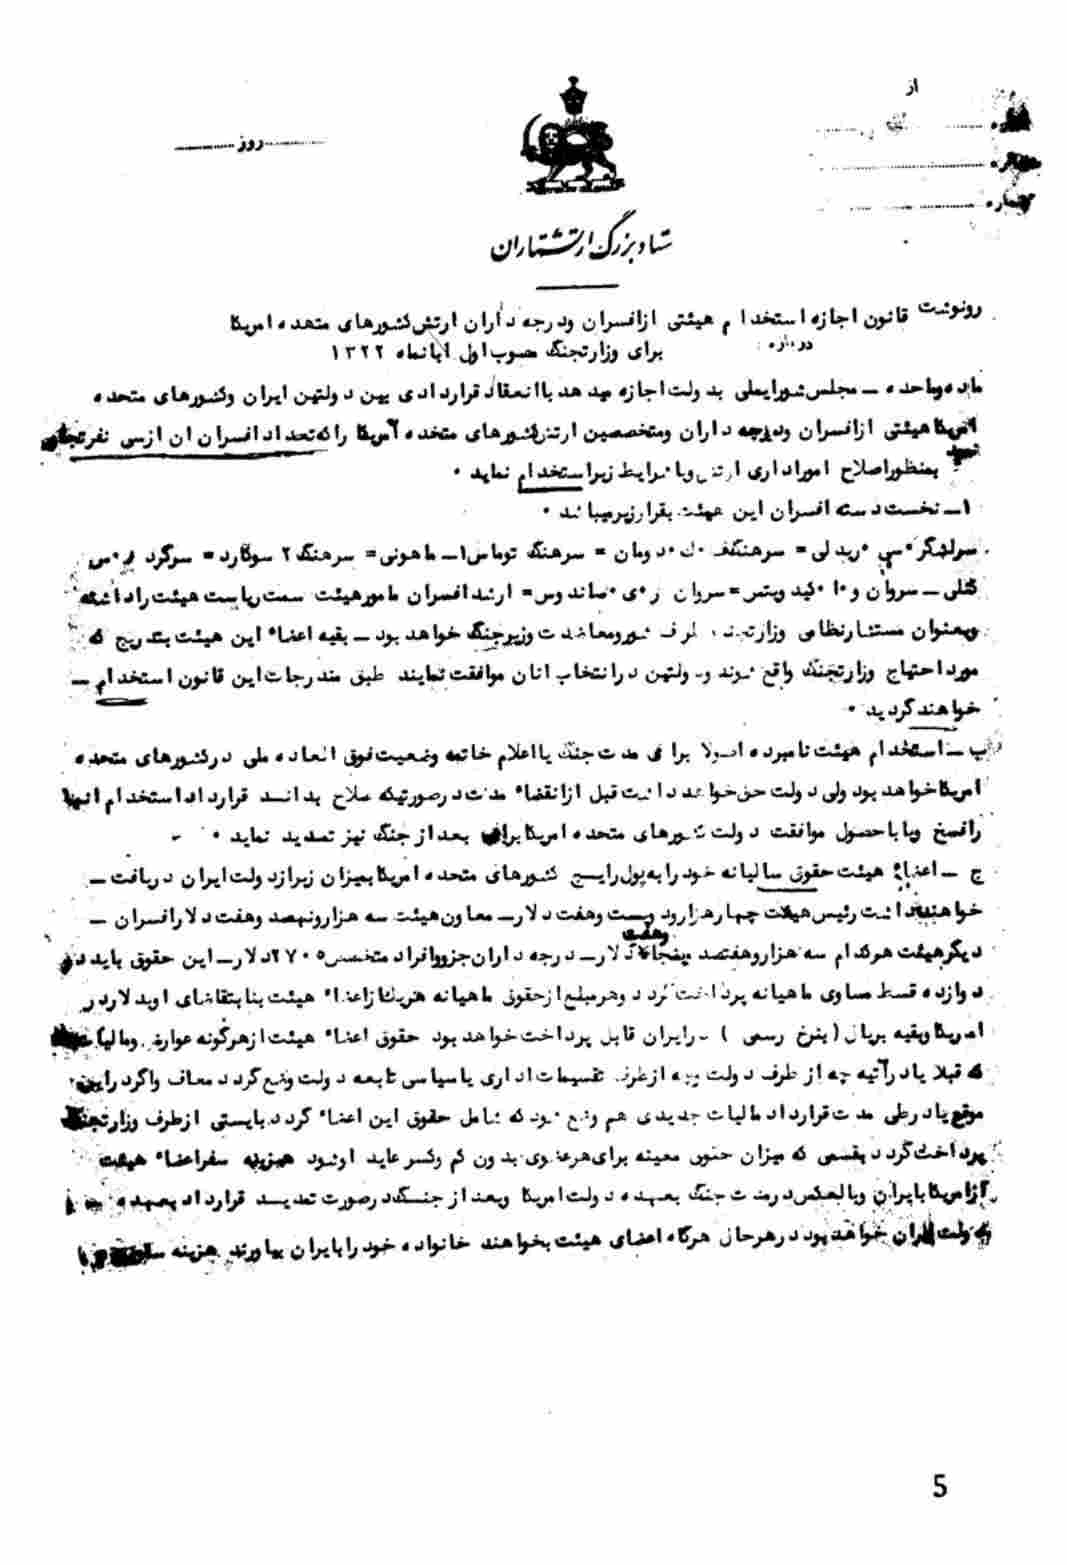 از
روز
شماره
ستاد بزرگ ارتشتاران
رونوشت قانون اجازه استخدام هیئتی ازافسران ودرجه داران ارتش کشورهای متحده امریکا
درباره
برای وزارتجنگ مصوب اول ابانماه ۱۳۲۲
ماده واحده ــ مجلس شورایملی بدولت اجازه میدهد باانعقاد قراردادی بین دولتین ایران وکشورهای متحده
امریکا هیئتی ازافسران ودرجه داران ومتخصصین ارتش کشورهای متحده آمریکا راکه تعداد افسران ان ازسی نفرتجاوز
بمنظوراصلاح اموراداری ارتش وبا شرایط زیراستخدام نماید ۰
۱ــ نخست دسته افسران این هیئت بقرارزیرمیباشند ۰
سرلشگر سی ریدلی = سرهنگ دومان = سرهنگ توماس ا ــ ماهونی = سرهنگ ۲ سوگارد = سرگرد س
گتلی ــ سروان = سروان = ارشد افسران مامورهیئت سمت ریاست هیئت راداشته
وبعنوان مستشارنظامی وزارتجنگ طرف شورومعاضدت وزیرجنگ خواهد بود ــ بقیه اعضاء این هیئت بتدریج که
مورد احتیاج وزارتجنگ واقع شوند ودولتین درانتخاب انان موافقت نمایند طبق مندرجات این قانون استخدام ــ
خواهند گردید ۰
ب ــ استخدام هیئت نامبرده اصولا برای مدت جنگ یااعلام خاتمه وضعیت فوق العاده ملی درکشورهای متحده
امریکا خواهد بود ولی دولت حق خواهد داشت قبل ازانقضاء مدت درصورتیکه صلاح بدانند قرارداد استخدام انها
رافسخ ویا باحصول موافقت دولت کشورهای متحده امریکا برای بعد از جنگ نیز تمدید نماید ۰
ج ــ اعضاء هیئت حقوق سالیانه خود را به پول رایج کشورهای متحده امریکا بمیزان زیرازدولت ایران دریافت ــ
خواهند داشت رئیس هیئت چهارهزارو دویست وهفت دلار ــ معاون هیئت سه هزارونهصد وهفت دلارافسران ــ
وهفت
دیگرهیئت هرکدام سه هزاروهفتصد وپنجاه دلار ــ درجه داران جزووافراد متخصص ۲۷۰۵ دلار ــ این حقوق باید در
دوازده قسط مساوی ماهیانه پرداخت گردد وهرمبلغ ازحقوق ماهیانه هریک ازاعضاء هیئت بنا بتقاضای اوبدلاردر
امریکا وبقیه بریال ( بنرخ رسمی ) درایران قابل پرداخت خواهد بود حقوق اعضاء هیئت ازهرگونه عوارض ومالیات
که قبلا یادرآتیه چه از طرف دولت وچه ازطرف تقسیمات اداری یاسیاسی تابعه دولت وضع گردد معاف واگردراین
موقع یادرطی مدت قرارداد مالیات جدیدی هم وضع شود که شامل حقوق این اعضاء گردد بایستی ازطرف وزارتجنگ
پرداخت گردد بقسمی که میزان حقوق معینه برای هرعضوی بدون کم وکسر عاید اوشود هزینه سفراعضاء هیئت
ازامریکا بایران وبالعکس درمدت جنگ بعهده دولت امریکا وبعد از جنگ درصورت تمدید قرارداد بعهده
دولت ایران خواهد بود درهرحال هرگاه اعضای هیئت بخواهند خانواده خود رابایران بیاورند هزینه
5